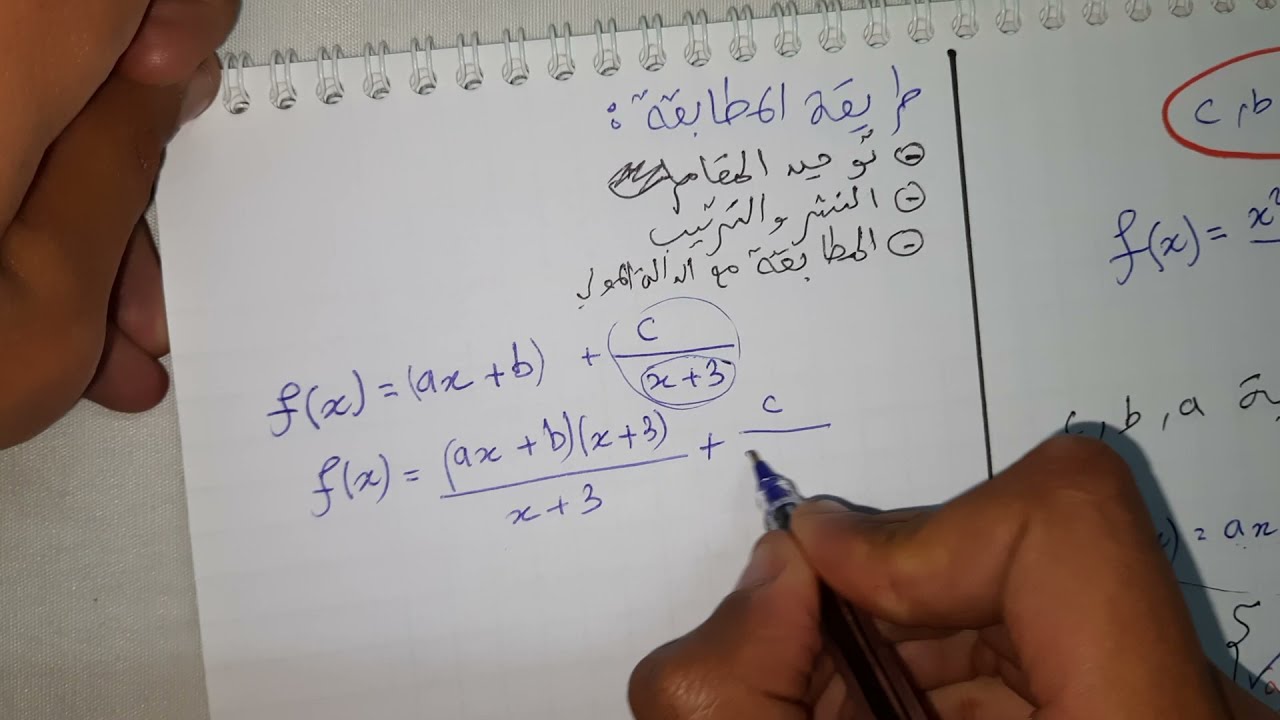 طريقة المطابقة:
⊖ توحيد المقام
⊖ النشر والترتيب
⊖ المطابقة مع الدالة
f(x) = (ax + b) + c/(x + 3)
f(x) = (ax + b)(x + 3)/(x + 3) + c
c, b
f(x) = x²
c, b, a
= ax